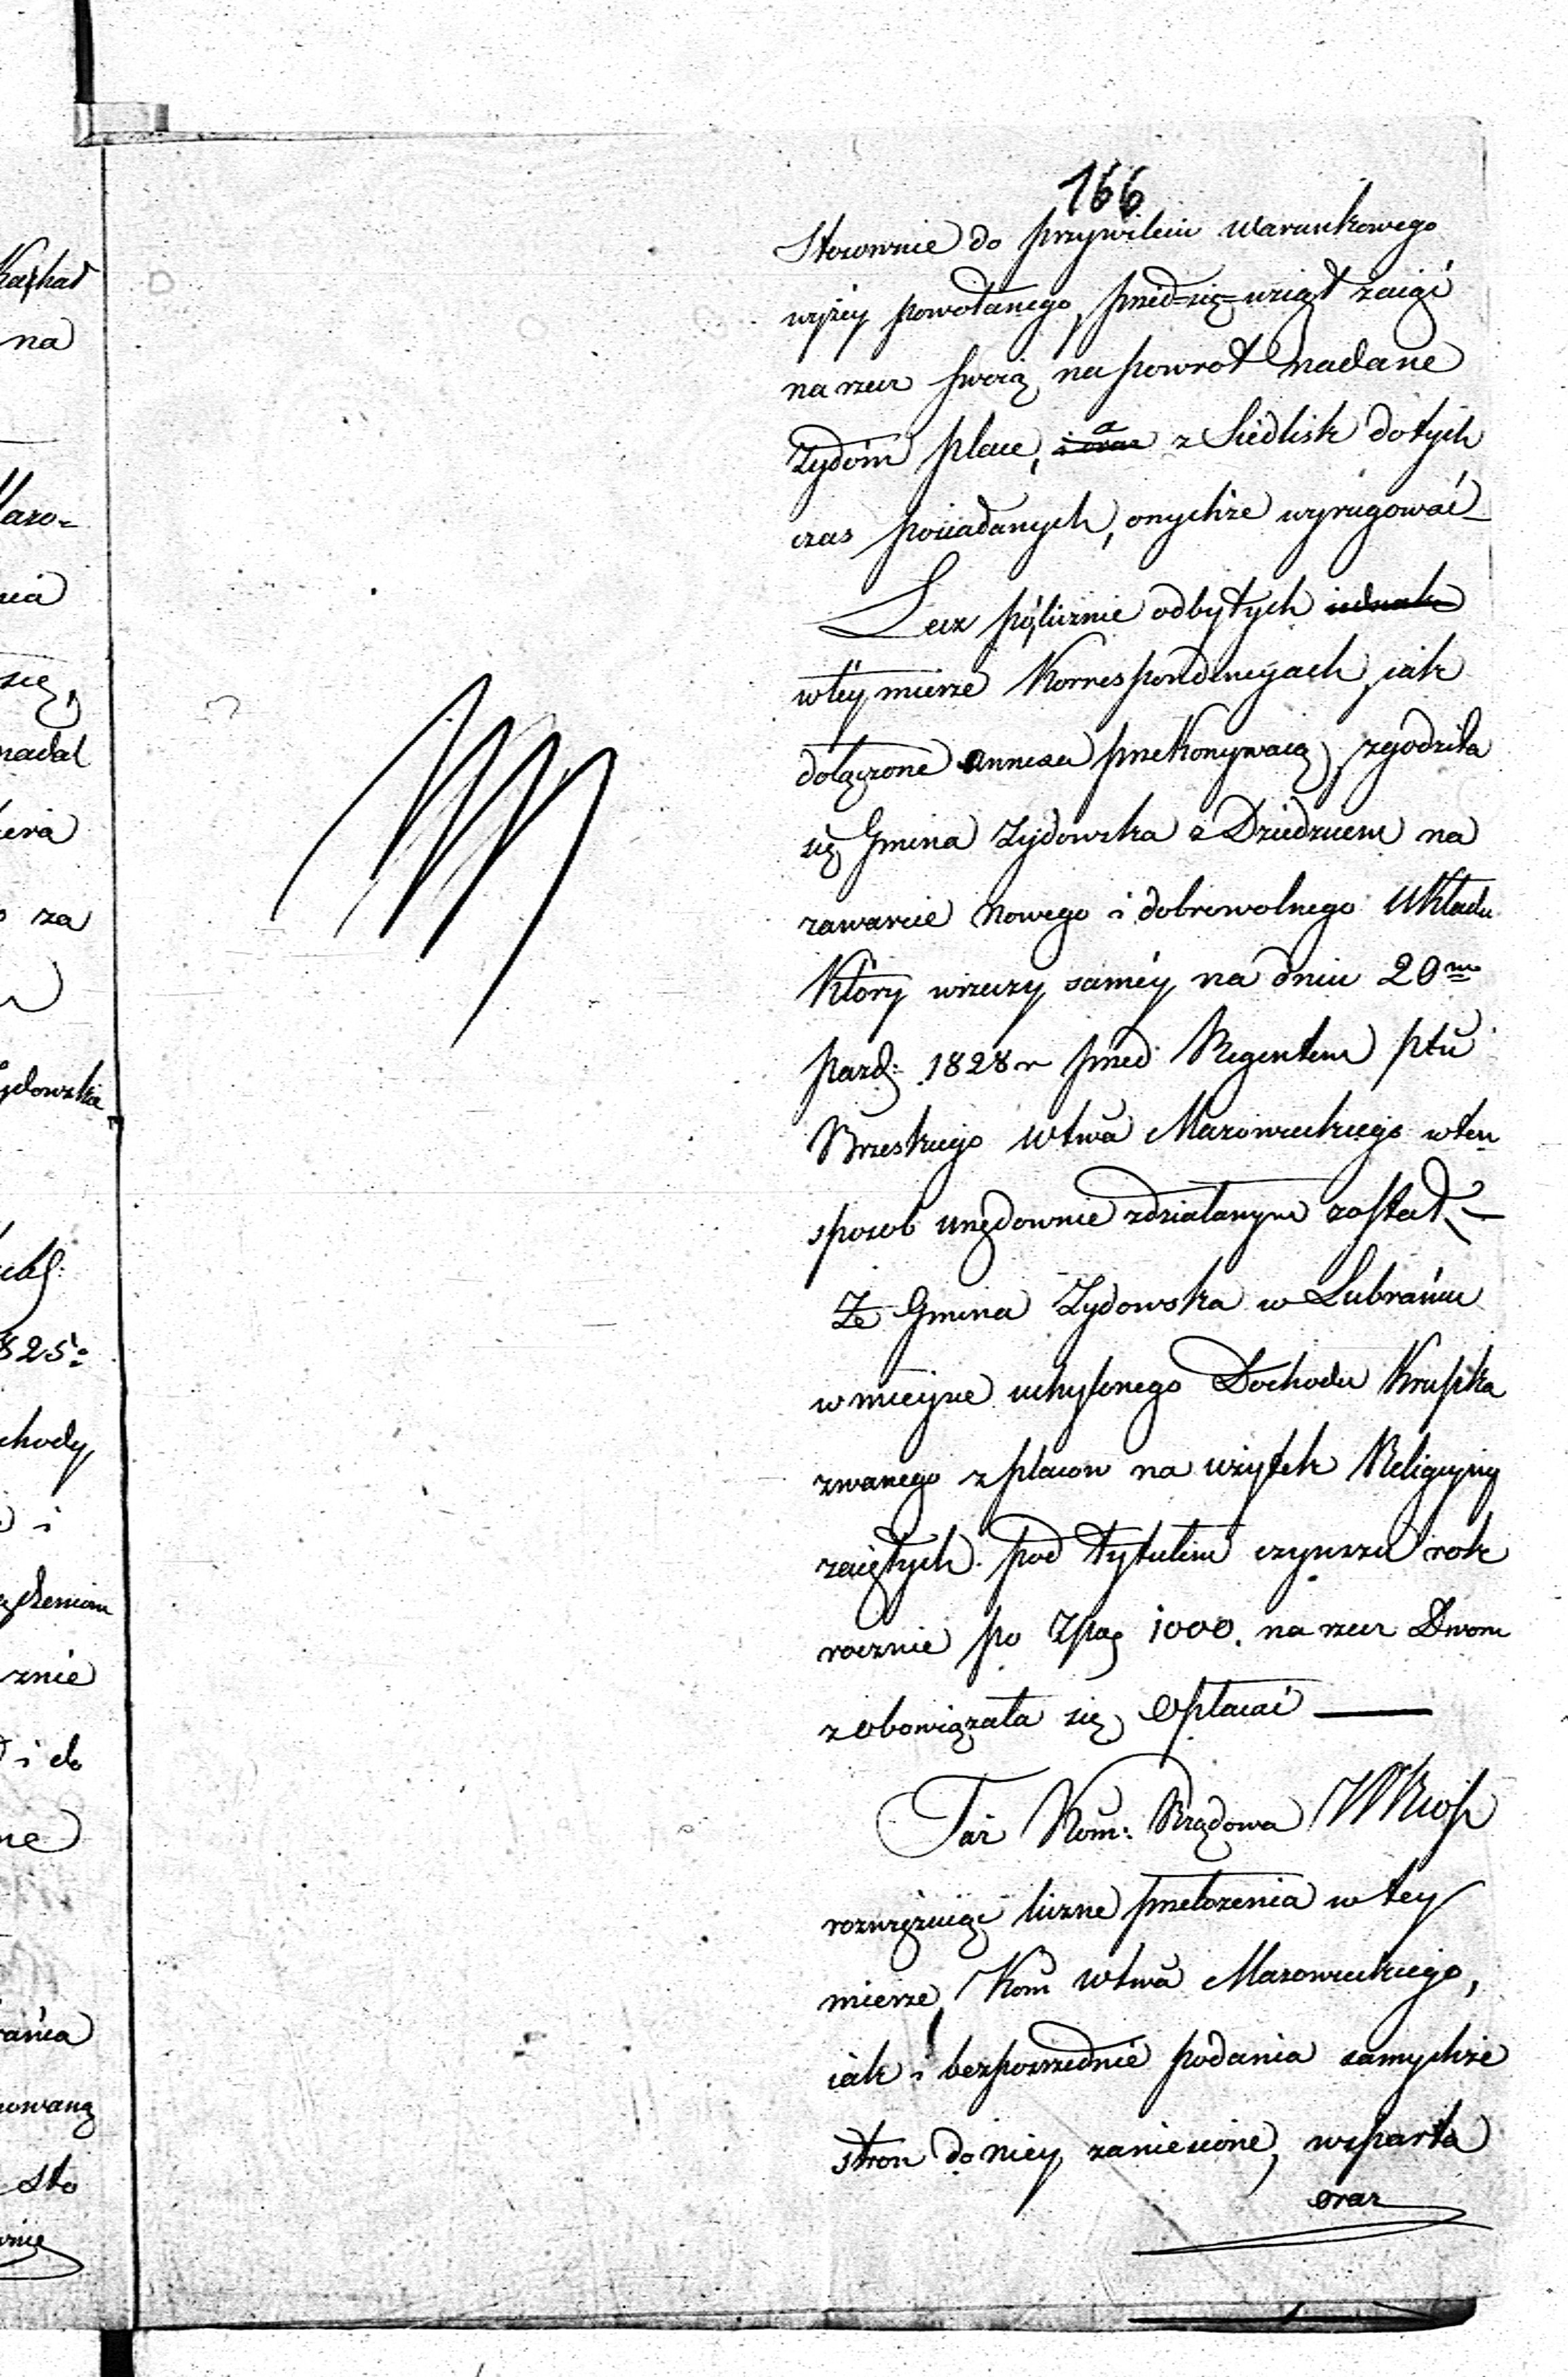 166
Stosownie do przywileiu warunkowego
wyżey powołanego, przed=się=wziął zaiąć
na rzecz swoią na powrot nadane
Żydom place, i oraz a z Siedlisk dotych
czas posiadanych, onychże wyrugować
Lecz po licznie odbytych iednak
w tey mierze Korrespondencyach, iak
dołączone annexa przekonywaią, zgodziła
się Gmina Żydowska z Dziedzicem na
zawarcie nowego i dobrowolnego Układu
Który w rzeczy saméy na dniu 20m
pazd: 1828 r przed Regentem ptu
Brzeskiego Wtwa Mazowieckiego w ten
sposob urzędownie zdziałanym został
Że Gmina Żydowska w Lubrańcu
w mieysce uchylonego Dochodu Krupka
zwanego z placow na użytek Religyiny
zaiętych pod tytułem czynszu rok
rocznie po Złpol 1000. na rzecz Dworu
zobowiązała się Opłacać
Taż Kom: Rządowa
rozważaiąc liczne przełożenia w tey
mierze, Kom Wtwa Mazowieckiego,
iak i bezpośrzednie podania samychże
stron do niey zaniesione, wsparta
oraz
Kachał
na
Mazo=
nia
się,
nadal
za
825:
chody,
i
znie
i do
ne
rańca
nowaną
Sto